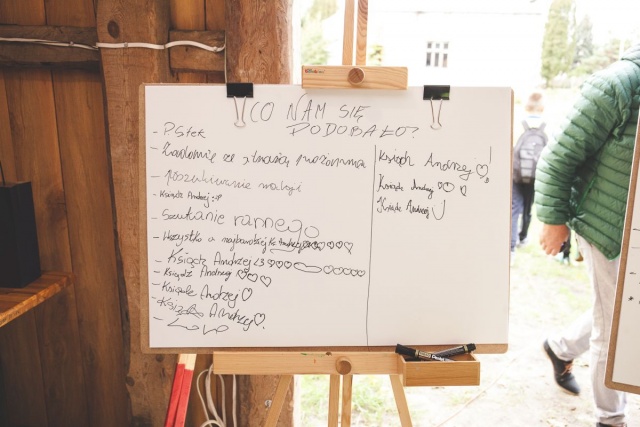 CO NAM SIĘ
PODOBAŁO?
- P. Stek
- Zadania ze strażą pożarną
- Poszukiwanie
- Ksiądz Andrzej :P
- Szukanie rannego
- Wszystko a najbardziej Ks. Andrzej
- Ksiądz Andrzej <3
- Ksiądz Andrzej
- Ksiądz Andrzej
- Ksiądz Andrzej
Ksiądz Andrzej !
Ksiądz Andrzej
Ksiądz Andrzej